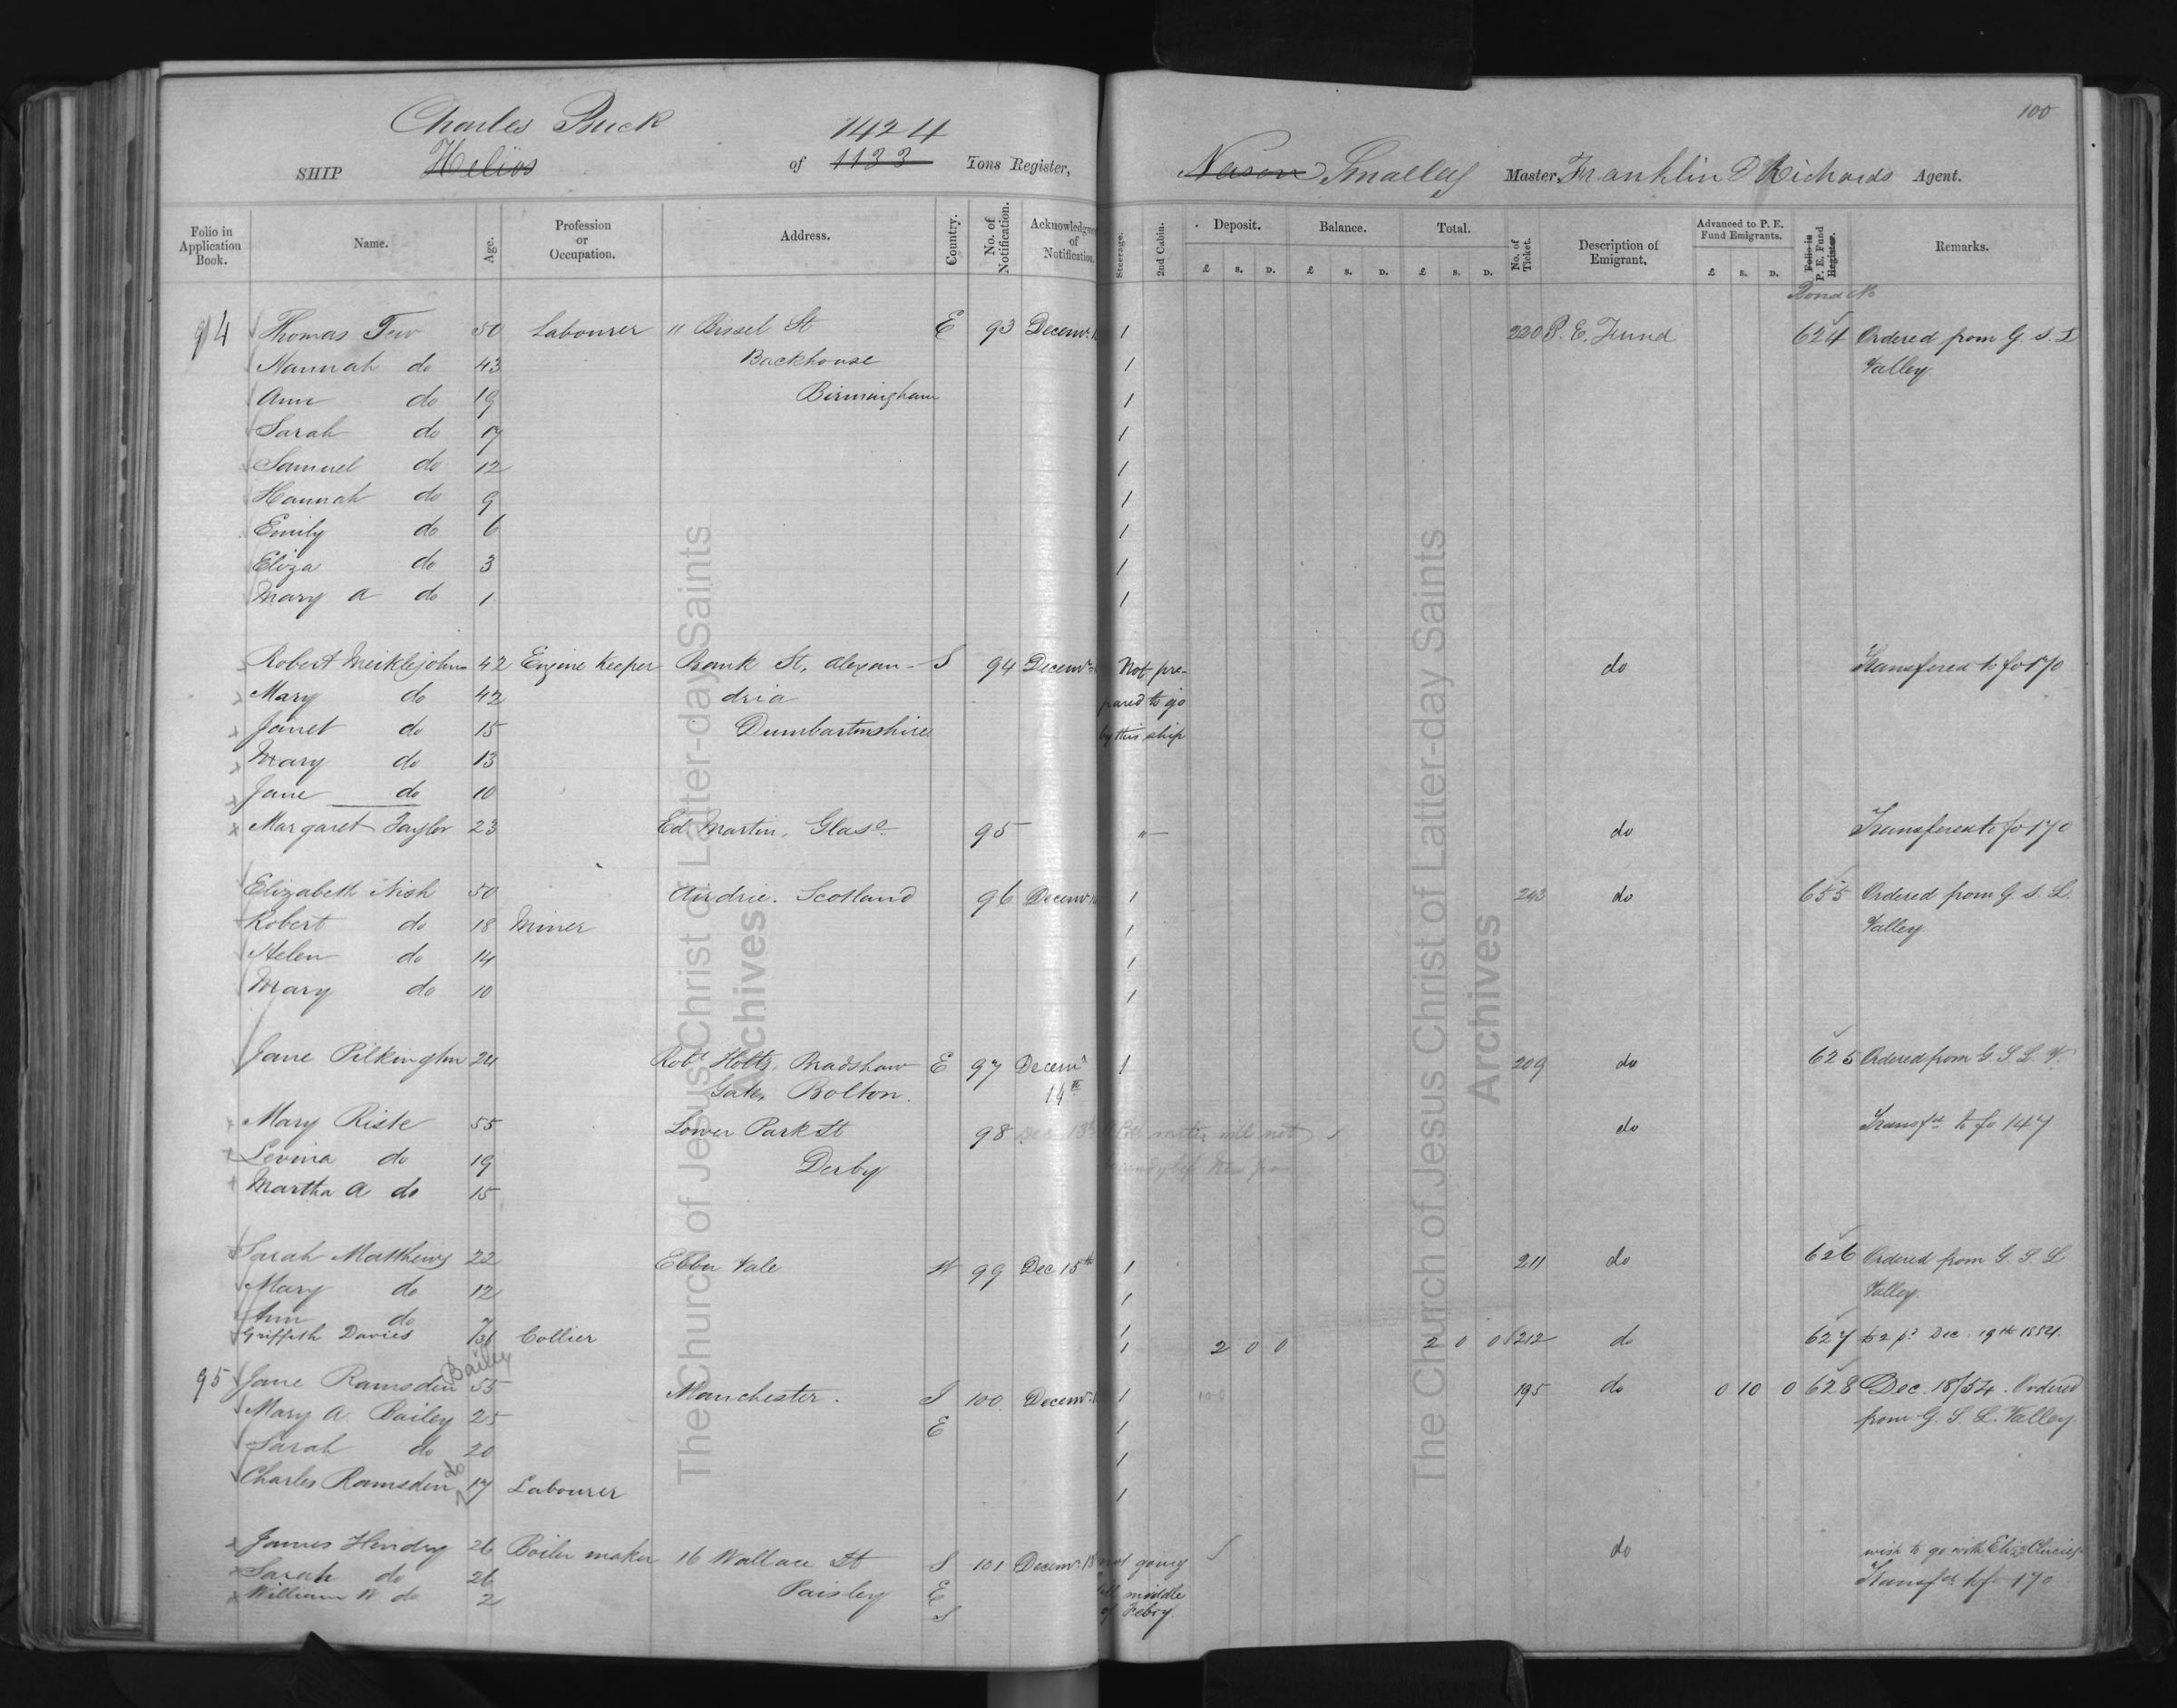 100
Charles Buck 1424
SHIP Helios of 1133 Tons Register, Nason Smalley Master, Franklin D Richards Agent.
Folio in Application Book. Name. Age. Profession or Occupation. Address. Country. No. of Notification. Acknowledgment of Notification. Steerage. 2nd Cabin. Deposit. £ s. D. Balance. £ s. D. Total. £ s. D. No. of Ticket. Description of Emigrant. Advanced to P. E. Fund Emigrants. £ s. D. Folio in P. E. Fund Register. Remarks.
Bond No
94 Thomas Tew 50 Labourer 11 Bissel St E 93 Decemr 1 220 P. E. Fund 624 Ordered from G. S. L
Hannah do 43 Backhouse 1 Valley
Ann do 19 Birmingham 1
Sarah do 17 1
Samuel do 12 1
Hannah do 9 1
Emily do 6 1
Eliza do 3 1
Mary A do 1 1
Robert Meiklejohn 42 Engine Keeper Bank St, Alexan- S 94 Decemr Not pre- do Transfered to fo 170
Mary do 42 dria pared to go
Janet do 15 Dumbartonshire by this ship
Mary do 13
Jane do 10
x Margaret Taylor 23 Ed. Martin, Glaso 95 "— do Transfered to fo 170
Elizabeth Nish 50 Airdrie. Scotland 96 Decemr 1 243 do 655 Ordered from G. S. L.
Robert do 18 Miner 1 Valley
Helen do 14 1
Mary do 10 1
Jane Pilkington 24 Robt Holts, Bradshaw E 97 Decemr 1 209 do 625 Ordered from G S L. V.
Gate, Bolton. 14th
Mary Riste 55 Lower Park St 98 Dec 18th will not do Transfd to fo 147
Levina do 19 Derby
Martha A do 15
Sarah Matthews 22 Ebbw Vale W 99 Dec 15th 1 211 do 626 Ordered from G. S. L
Mary do 12 1 Valley.
Ann do 7 1
Griffith Davies 36 Collier 1 2 0 0 2 0 0 212 do 627 £2 pd Dec. 19th 1854.
Bailey
95 Jane Ramsden 55 Manchester. S 100 Decemr 1 195 do 0 10 0 628 Dec. 18/54. Ordered
Mary A. Bailey 25 E 1 from G. S. L. Valley.
Sarah do 20 1
do
Charles Ramsden 17 Labourer 1
James Hendry 26 Boiler maker 16 Wallace St S 101 Decemr 18 not going do wish to go with Eliz
Sarah do 26 Paisley E till middle Transfd to fo 170
William W do 2 S of Febry.
The Church of Jesus Christ of Latter-day Saints
Archives
The Church of Jesus Christ of Latter-day Saints
Archives